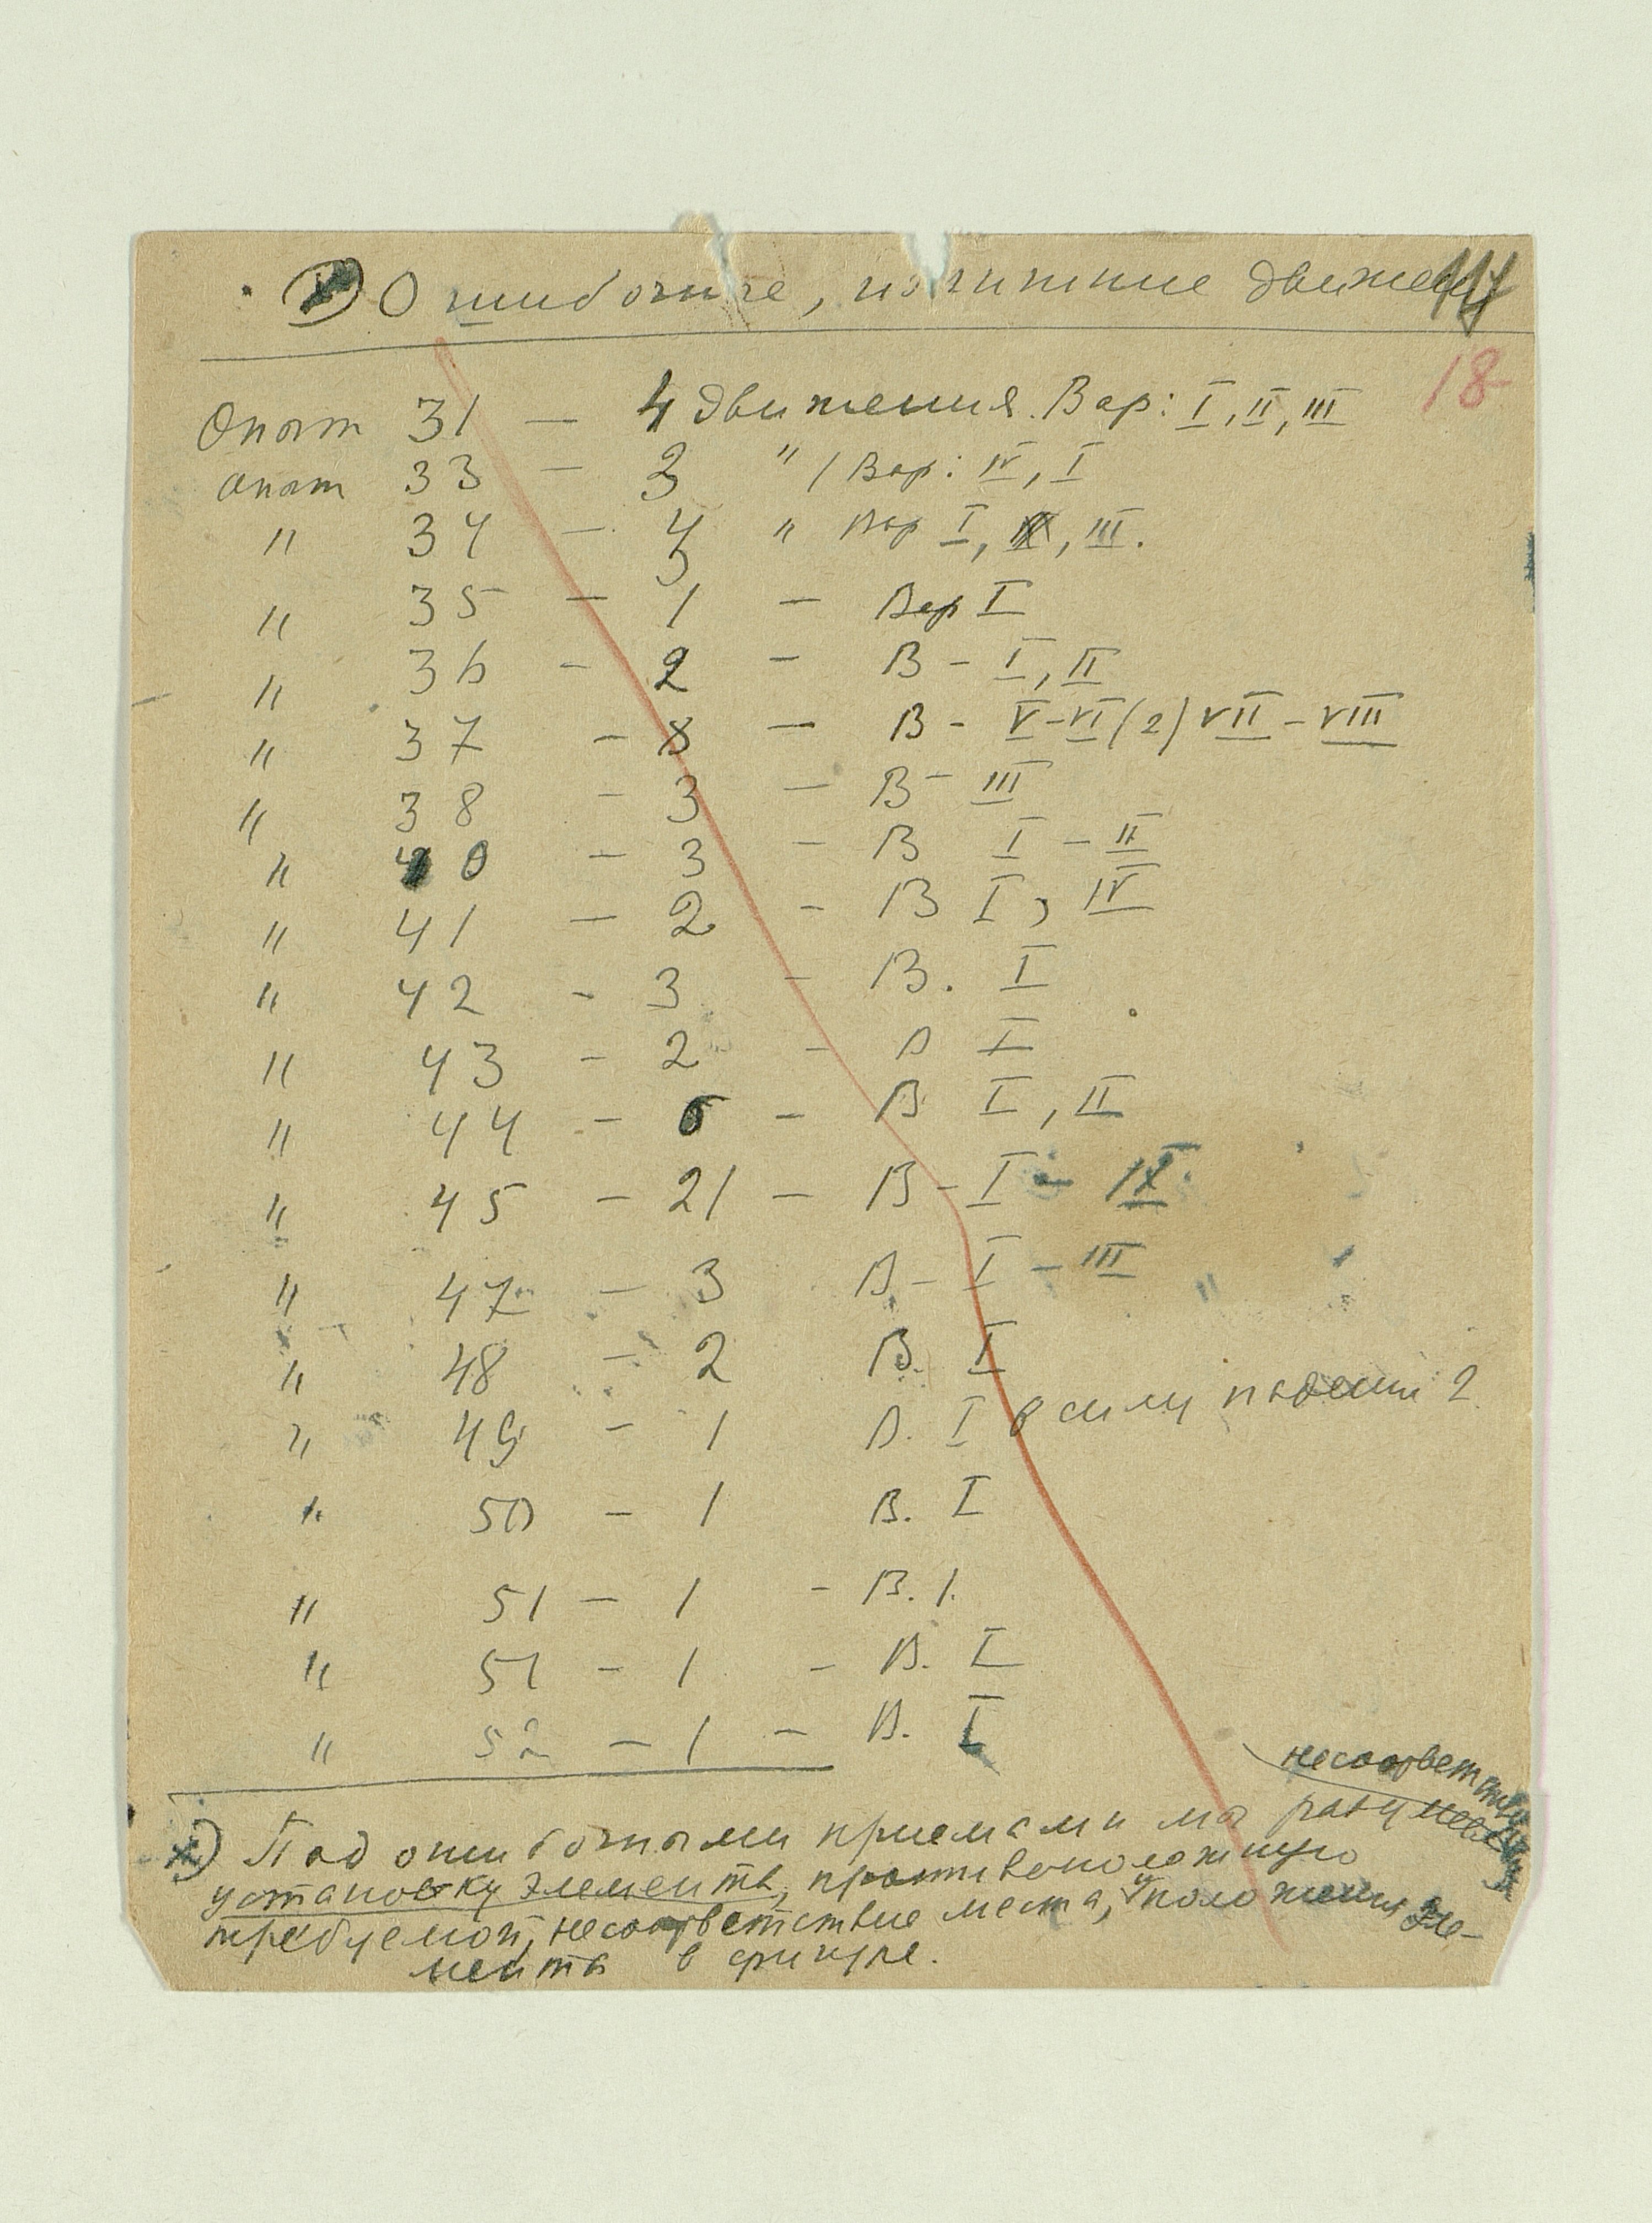 1) Ошибочные, излишние движения
18
Опыт 31 — 4 движения. Вар: I, II, III
Опыт 33 — 3 " / Вар: IV, I
" 34 — 4 " Вар I, III.
" 35 — 1 — Вар I
" 36 — 2 — В – I, II
" 37 — 8 — В – V–VI (2) VII – VIII
" 38 — 3 — В – III
" 40 — 3 — В I – II
" 41 — 2 — В I, IV
" 42 — 3 — В. I
" 43 — 2 — В I
" 44 — 6 — В I, II
" 45 — 21 — В – I – IX
" 47 — 3 В – I – III
" 48 — 2 В. I
" 49 — 1 В. I в силу 2
" 50 — 1 В. I
" 51 — 1 — В. I.
" 51 — 1 — В. I
" 52 — 1 — В. I
х) Под ошибочными приемами мы разумеем
установку элемента, противоположную
требуемой, несоответствие места, и положения эле-
мента в фигуре.